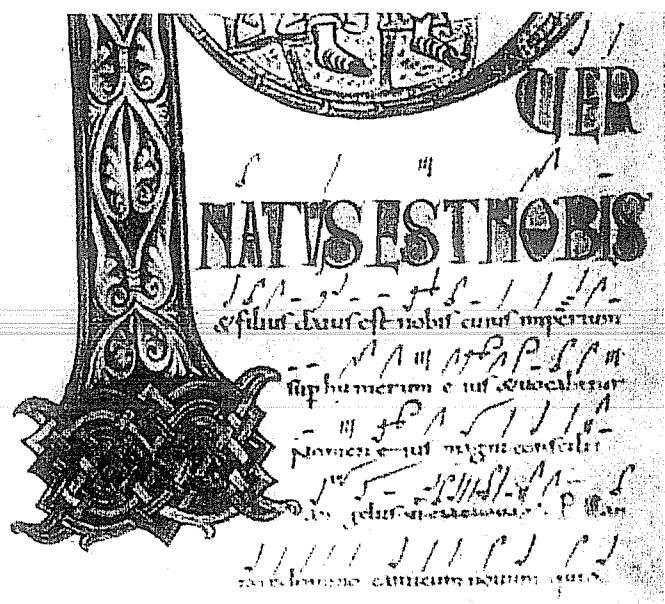 PUER
NATUS EST NOBIS
& filius datus est nobis cuius imperium
sup humerum e ius & uocabitur
nomen e ius magni consilii
gelus P Can
domino canticum nouum